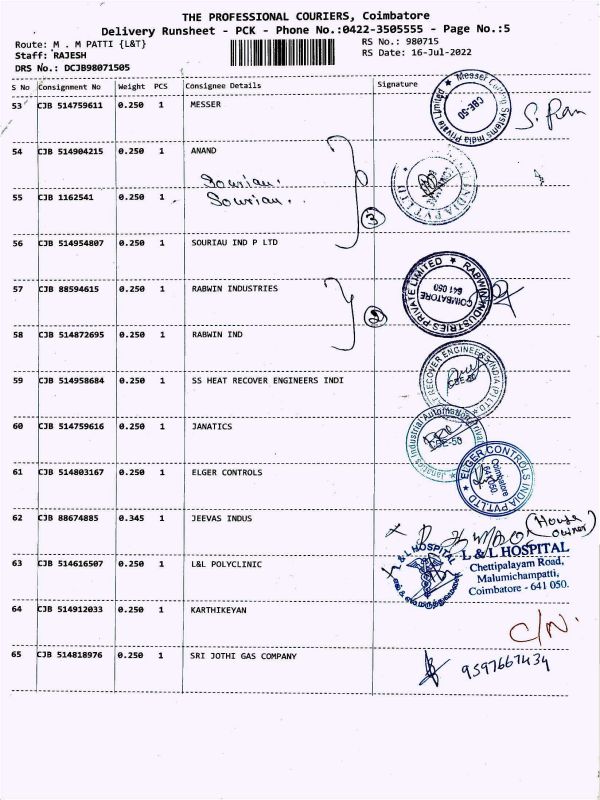 THE PROFESSIONAL COURIERS, Coimbatore
Delivery Runsheet - PCK - Phone No.:0422-3505555 - Page No.:5
Route: M . M PATTI {L&T}
RS No.: 980715
Staff: RAJESH
RS Date: 16-Jul-2022
DRS No.: DCJB98071505
S No Consignment No Weight PCS Consignee Details Signature
53 CJB 514759611 0.250 1 MESSER
Systems India Private Limited ★ Messer
CBE-50
S. Ram
54 CJB 514904215 0.250 1 ANAND
Souriau.
INDIA PVT LTD
55 CJB 1162541 0.250 1
Souriau.
3
56 CJB 514954807 0.250 1 SOURIAU IND P LTD
57 CJB 88594615 0.250 1 RABWIN INDUSTRIES
2
★ RABWIN INDUSTRIES PRIVATE LIMITED
COIMBATORE
641 050
58 CJB 514872695 0.250 1 RABWIN IND
59 CJB 514958684 0.250 1 SS HEAT RECOVER ENGINEERS INDI
RECOVER ENGINEERS INDIA (P) LTD
COE-50
60 CJB 514759616 0.250 1 JANATICS
Janatics Industrial Automation Private
COE-50
61 CJB 514803167 0.250 1 ELGER CONTROLS
★ ELGER CONTROLS INDIA PVT LTD
Coimbatore
641 050.
62 CJB 88674885 0.345 1 JEEVAS INDUS
(House owner)
63 CJB 514616507 0.250 1 L&L POLYCLINIC
L & L HOSPITAL
L & L HOSPITAL
Chettipalayam Road,
Malumichampatti,
Coimbatore - 641 050.
64 CJB 514912033 0.250 1 KARTHIKEYAN
C/N.
65 CJB 514818976 0.250 1 SRI JOTHI GAS COMPANY
9597667434